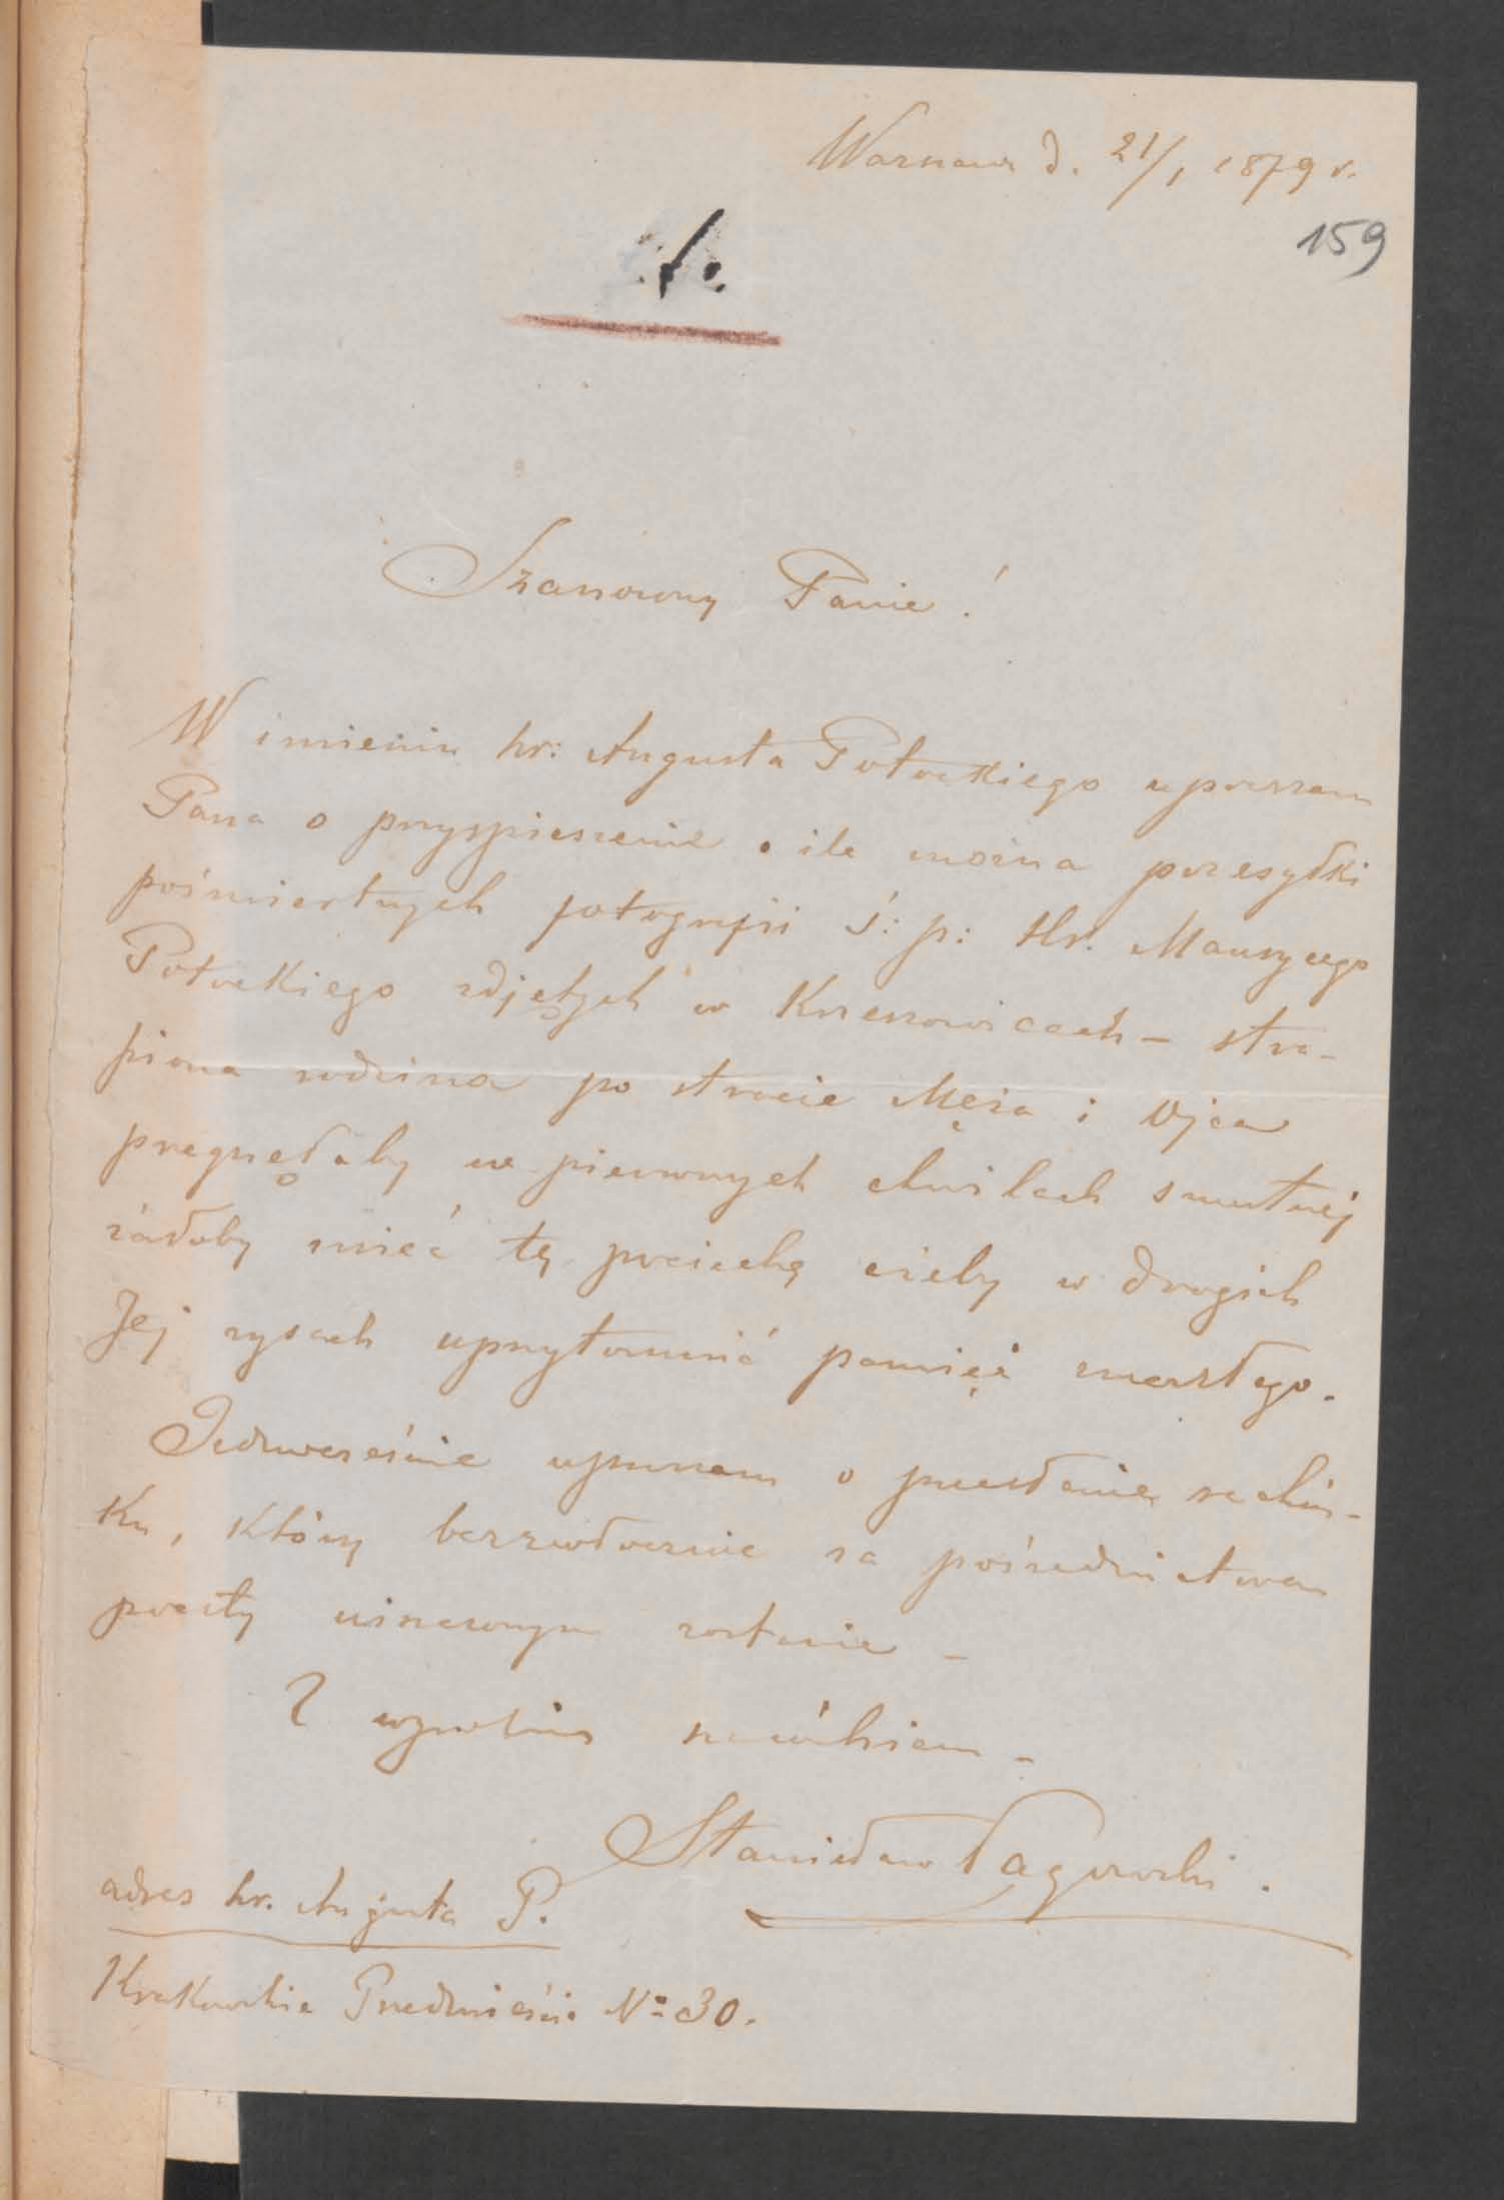 Warszawa d. 21/1 1879 r.
159
Szanowny Panie!
W imieniu hr: Augusta Potockiego upraszam
Pana o przyspieszenie o ile można przesyłki
pośmiertnych fotografii ś: p: Hr. Maurycego
Potockiego zdjętych w Krzeszowicach – stra-
piona rodzina po stracie Męża i Ojca
pragnęłaby w pierwszych chwilach smutnéj
żałoby mieć tę pociechę ażeby w drogich
Jej rysach uprzytomnić pamięć zmarłego.
Jednocześnie upraszam o przesłanie rachun-
ku, który bezzwłocznie za pośrednictwem
poczty uiszczonym zostanie –
Z szacunkiem –
Stanisław
adres hr. Augusta P.
Krakowskie Przedmieście No 30.